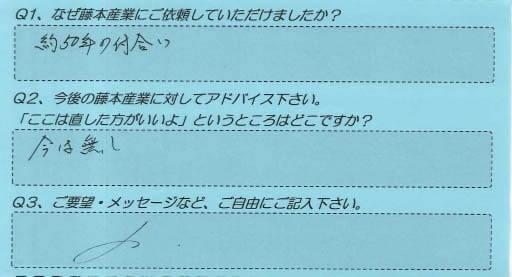 Q1、なぜ藤本産業にご依頼していただけましたか？
約50年の付合い
Q2、今後の藤本産業に対してアドバイス下さい。
「ここは直した方がいいよ」というところはどこですか？
今は無し
Q3、ご要望・メッセージなど、ご自由にご記入下さい。